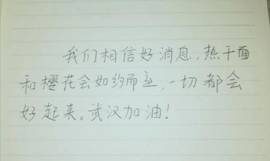 我们相信好消息，热干面
和樱花会如约而至，一切都会
好起来。武汉加油！